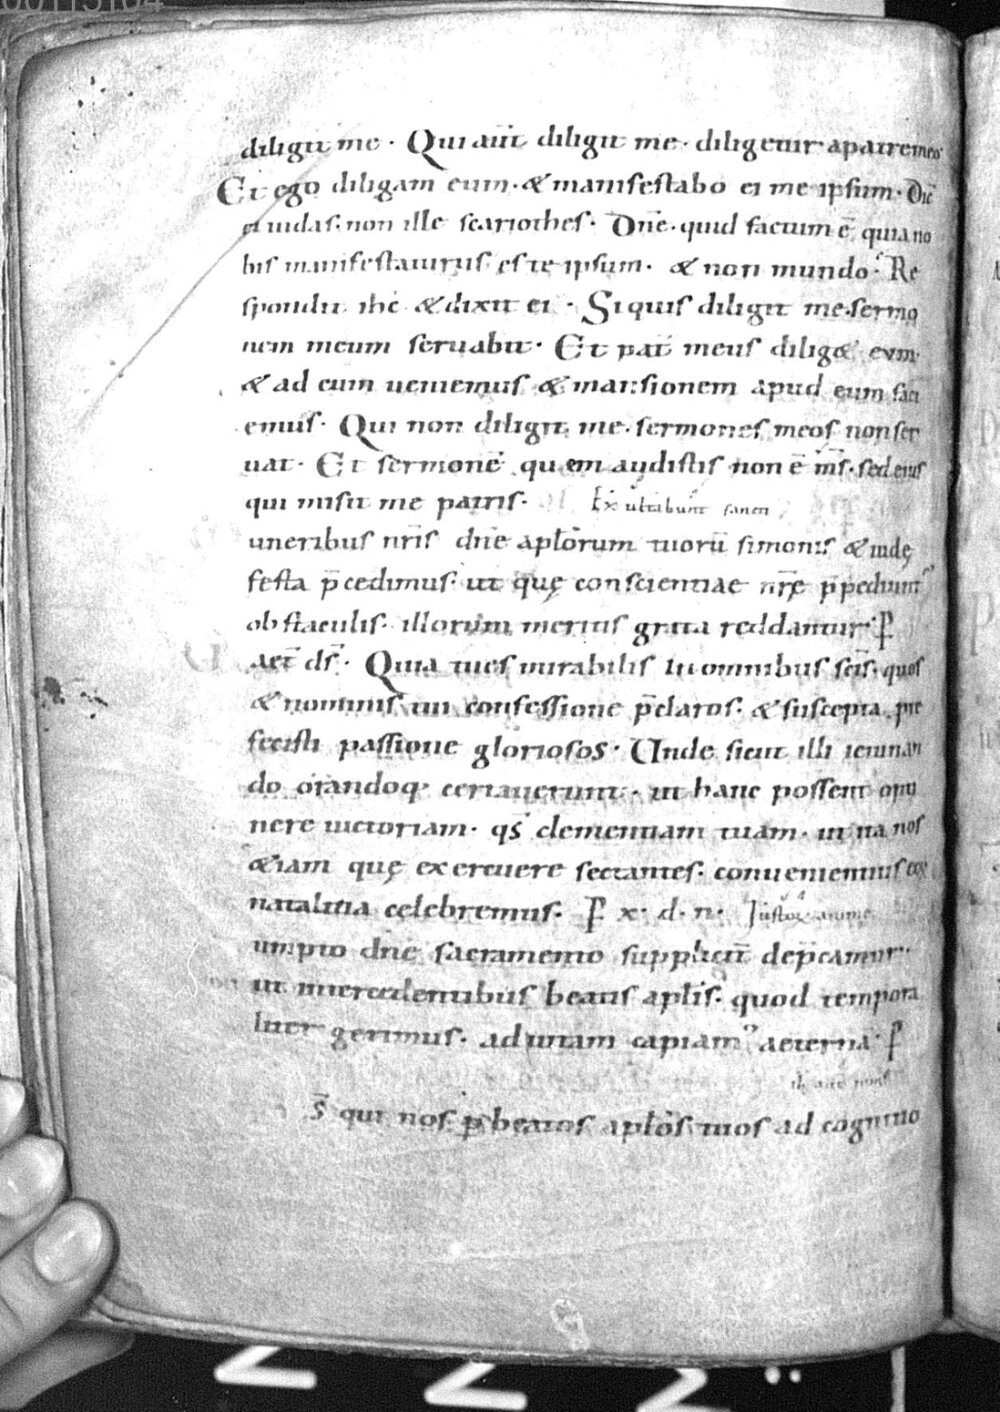 diligit me · Qui aūt diligit me · diligetur a patre meo
Et ego diligam eum · & manifestabo ei me ipsum · Dic̄
ei iudas · non ille scariothes · Dn̄e · quid factum ē · quia no
bis manifestaturus es te ipsum · & non mundo · Re
spondit ih̄c & dixit ei · Si quis diligit me · sermo
nem meum seruabit · Et pat̄ meus dilig& eum ·
& ad eum ueniemus & mansionem apud eum faci
emus · Qui non diligit me · sermones meos non ser
uat · Et sermonē quem audistis non ē m̄s · sed eius
qui misit me patris · Exultabunt sancti
uneribus nr̄is dn̄e aplorum tuorū simonis & iudę
festa p̄cedimus · ut quę conscientiae nr̄ę p̄pediunt᷑
obstaculis · illorum meritis grata reddantur · P
aet̄ ds̄ · Quia tu es mirabilis in omnibus sc̄is · quos
& nominis tui confessione p̄claros · & suscepta p te
fecisti passione gloriosos · Unde sicut illi ieiunan
do orandoq; certauerunt · ut hanc possent opti
nere uictoriam · qs̄ clementiam tuam · ut ita nos
&iam quę exercuere sectantes · conuenientius eoꝝ
natalitia celebremus · P x · d · n · Iustoꝝ anime
umpto dn̄e sacramento suppliciť dep̄camur ·
ut intercedentibus beatis aplis · quod tempora
liter gerimus · ad uitam capiam᷒ aeternā · P
s̄ qui nos p beatos aplos tuos ad cognitio